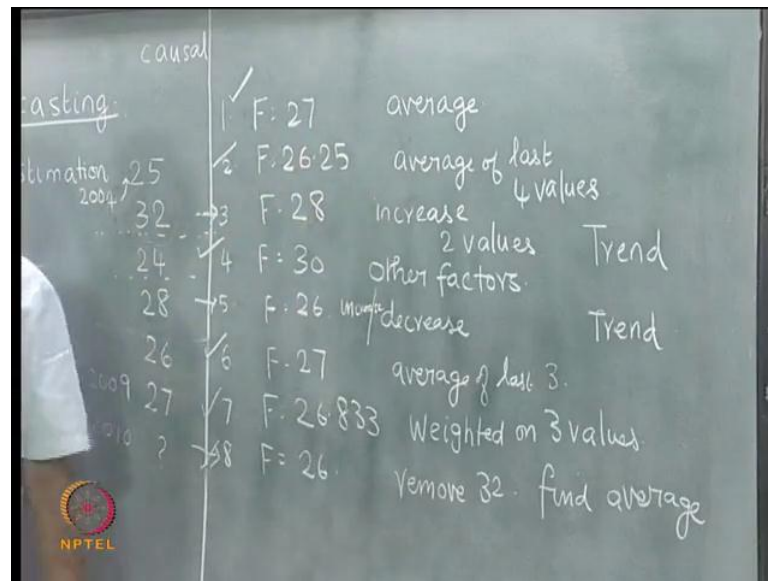 causal
casting:
stimation 25
2004
32
24
28
26
2009 27
2010 ?
1 F: 27 average
2 F. 26.25 average of last
4 values
3 F. 28 increase
2 values Trend
4 F= 30 other factors.
5 F. 26 decrease Trend
6 F. 27 average of last 3.
7 F. 26.833 Weighted on 3 values.
8 F= 26. remove 32. find average
NPTEL